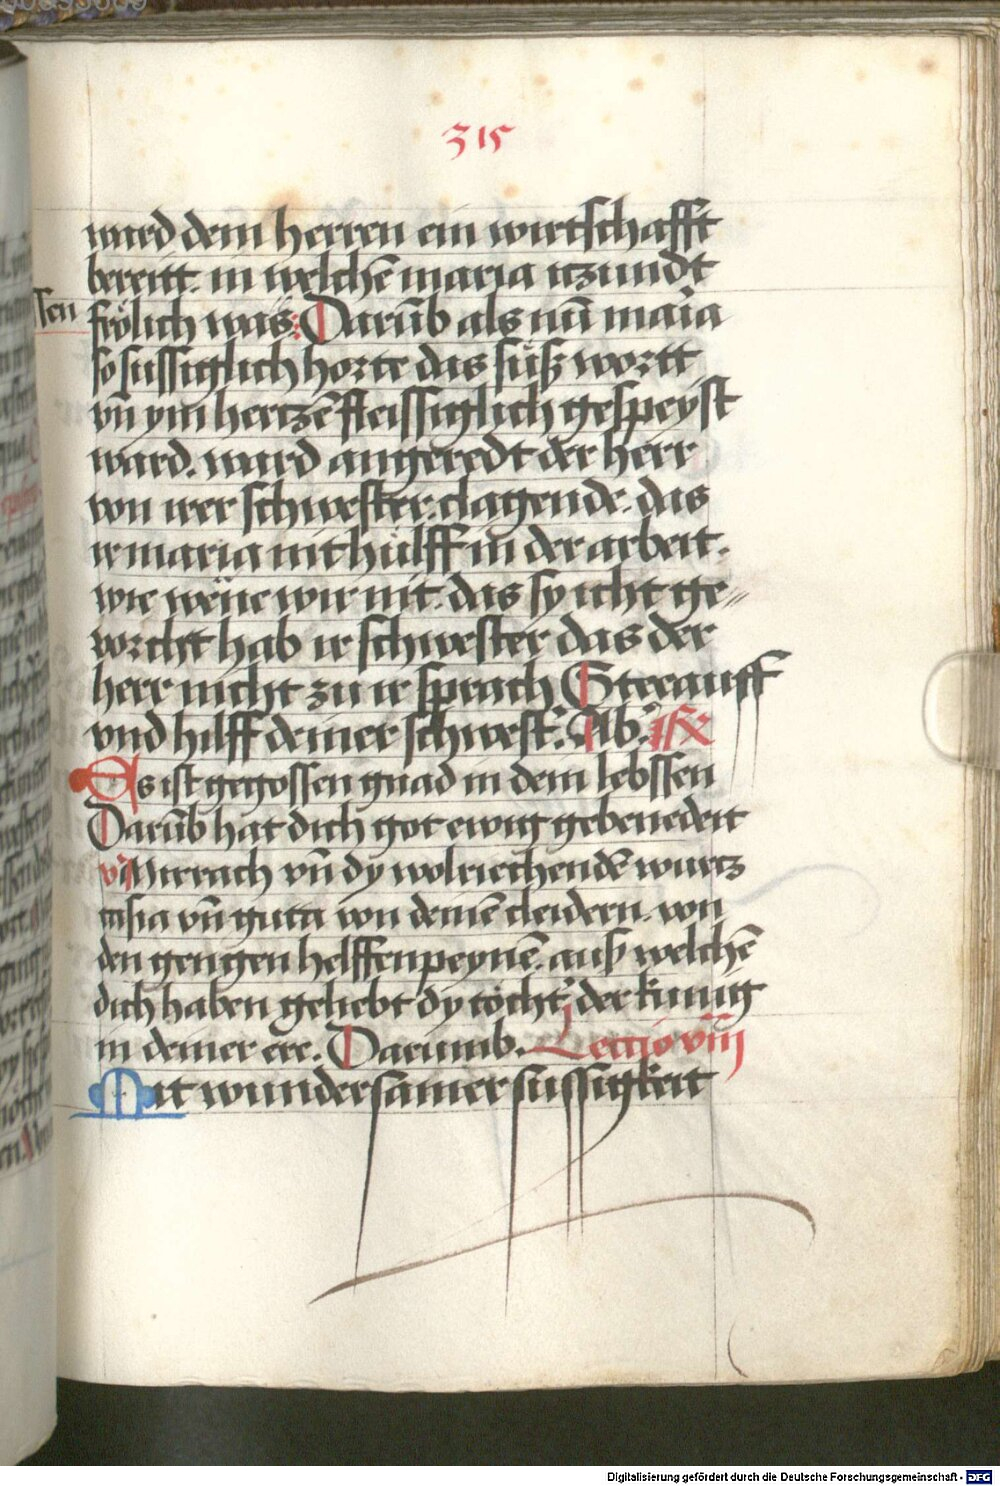 315
ward dem herren ein wirtschafft
bereitt. in welchē maria itzundt
frölich was: Darūb als nū maria
so sussiglich horte das süß wortt
vn̄ ym hertzē fleissiglich gespeyst
ward. ward angeredt der herr
von irer schwester. clagende. das
ir maria nit hülff in der arbeit.
wie wēne wir nit. das sy icht ge〃
vorcht hab ir schwester das der
herr nicht zu ir sprach Stee auff
vnd hilff deiner schwest'. Ab'
Es ist gegossen gnad in dem lebssen
Darūb hat dich got ewig gebenedeit
Mirrach vn̄ dy wolriechendē wurtz
vn̄ gutta von deinē cleidern. von
den gengen helffenpeynē. auß welchē
dich haben geliebt dy töcht' der kunig
in deiner ere. Darumb. Lectio viij
Mit wundersamer sussigkeit
Digitalisierung gefördert durch die Deutsche Forschungsgemeinschaft - DFG